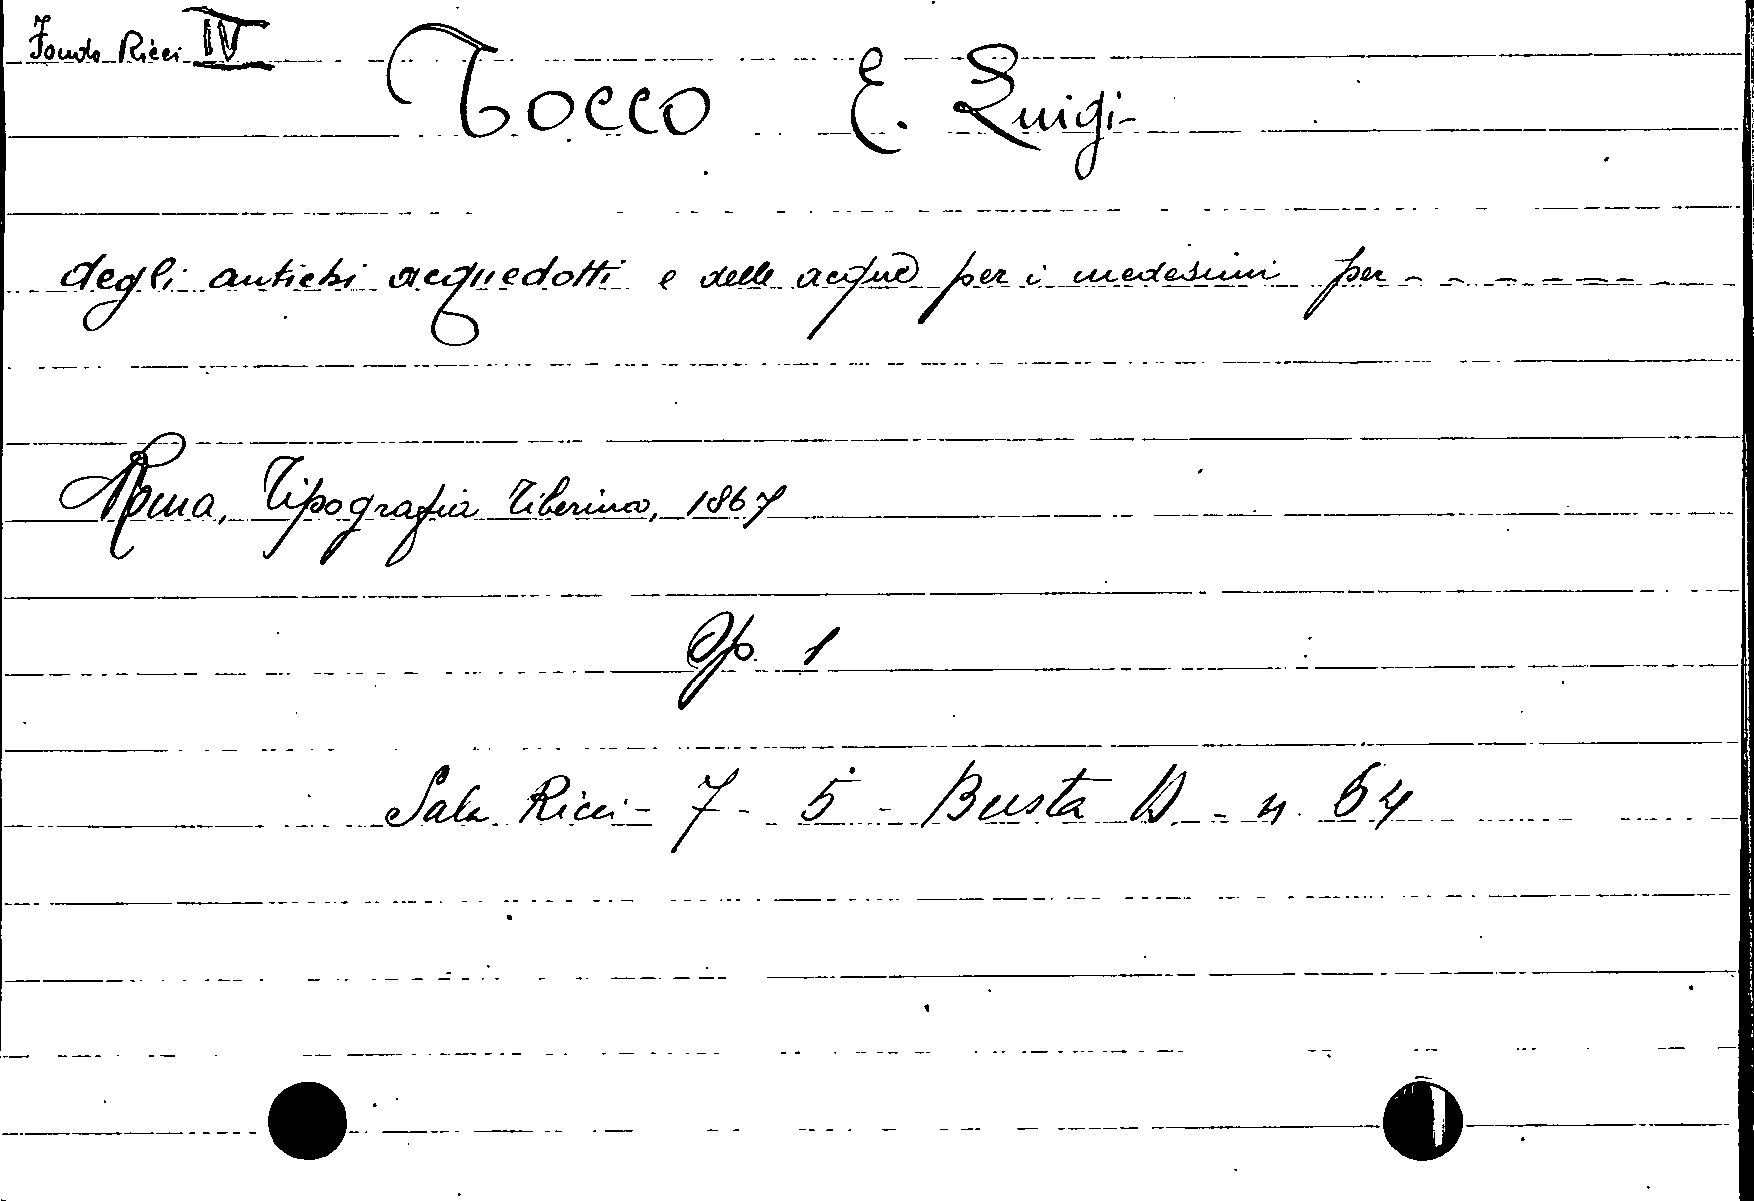 Fondo Ricci IV
Tocco E. Luigi-
degli antichi acquedotti e delle acque per i medesimi per - - - - - - -
Roma, Tipografia Tiberina, 1867
Op. 1
Sala Ricci - 7 - 5 - Busta D. - n. 64